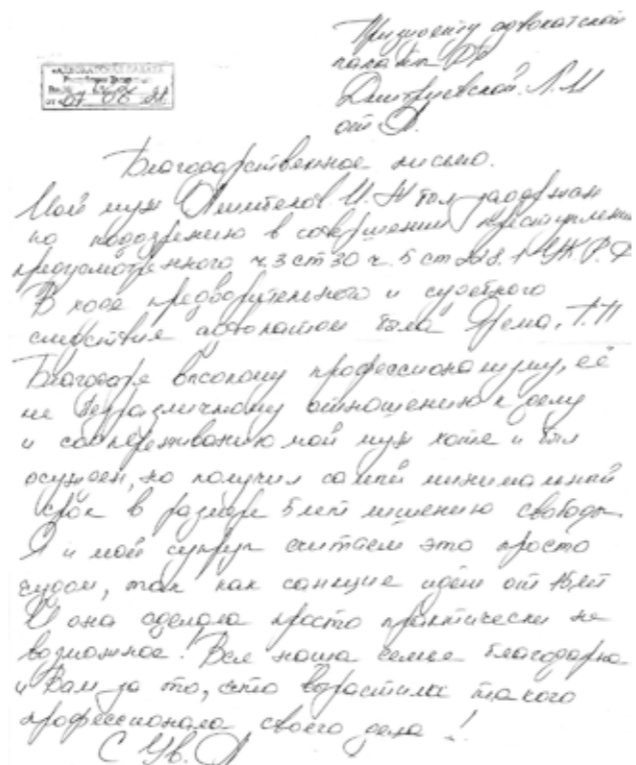 Президенту адвокатской
палаты РТ
Дмитриевской Л.М
от Л.
АДВОКАТСКАЯ ПАЛАТА
Республики Татарстан
Благодарственное письмо.
Мой муж И. Н был задержан
по подозрению в совершении преступления
предусмотренного ч.3 ст 30 ч. 5 ст 228.1 УК Р.Ф
В ходе предворительного и судебного
следствия адвокатом была Т.Н
Благодаря высокому профессионализму, её
не безразличному отношению к делу
и сопереживанию мой муж хоте и был
осужден, но получил самый минимальный
срок в размере 5 лет лишению свободы.
Я и мой супруг считаем это просто
чудом, так как санкцие идёт от 15 лет
И она сделала просто практически не
возможное! Вся наша семья благодарна
и Вам за то, что возрастили такого
профессионала своего дела !
С Ув. Л